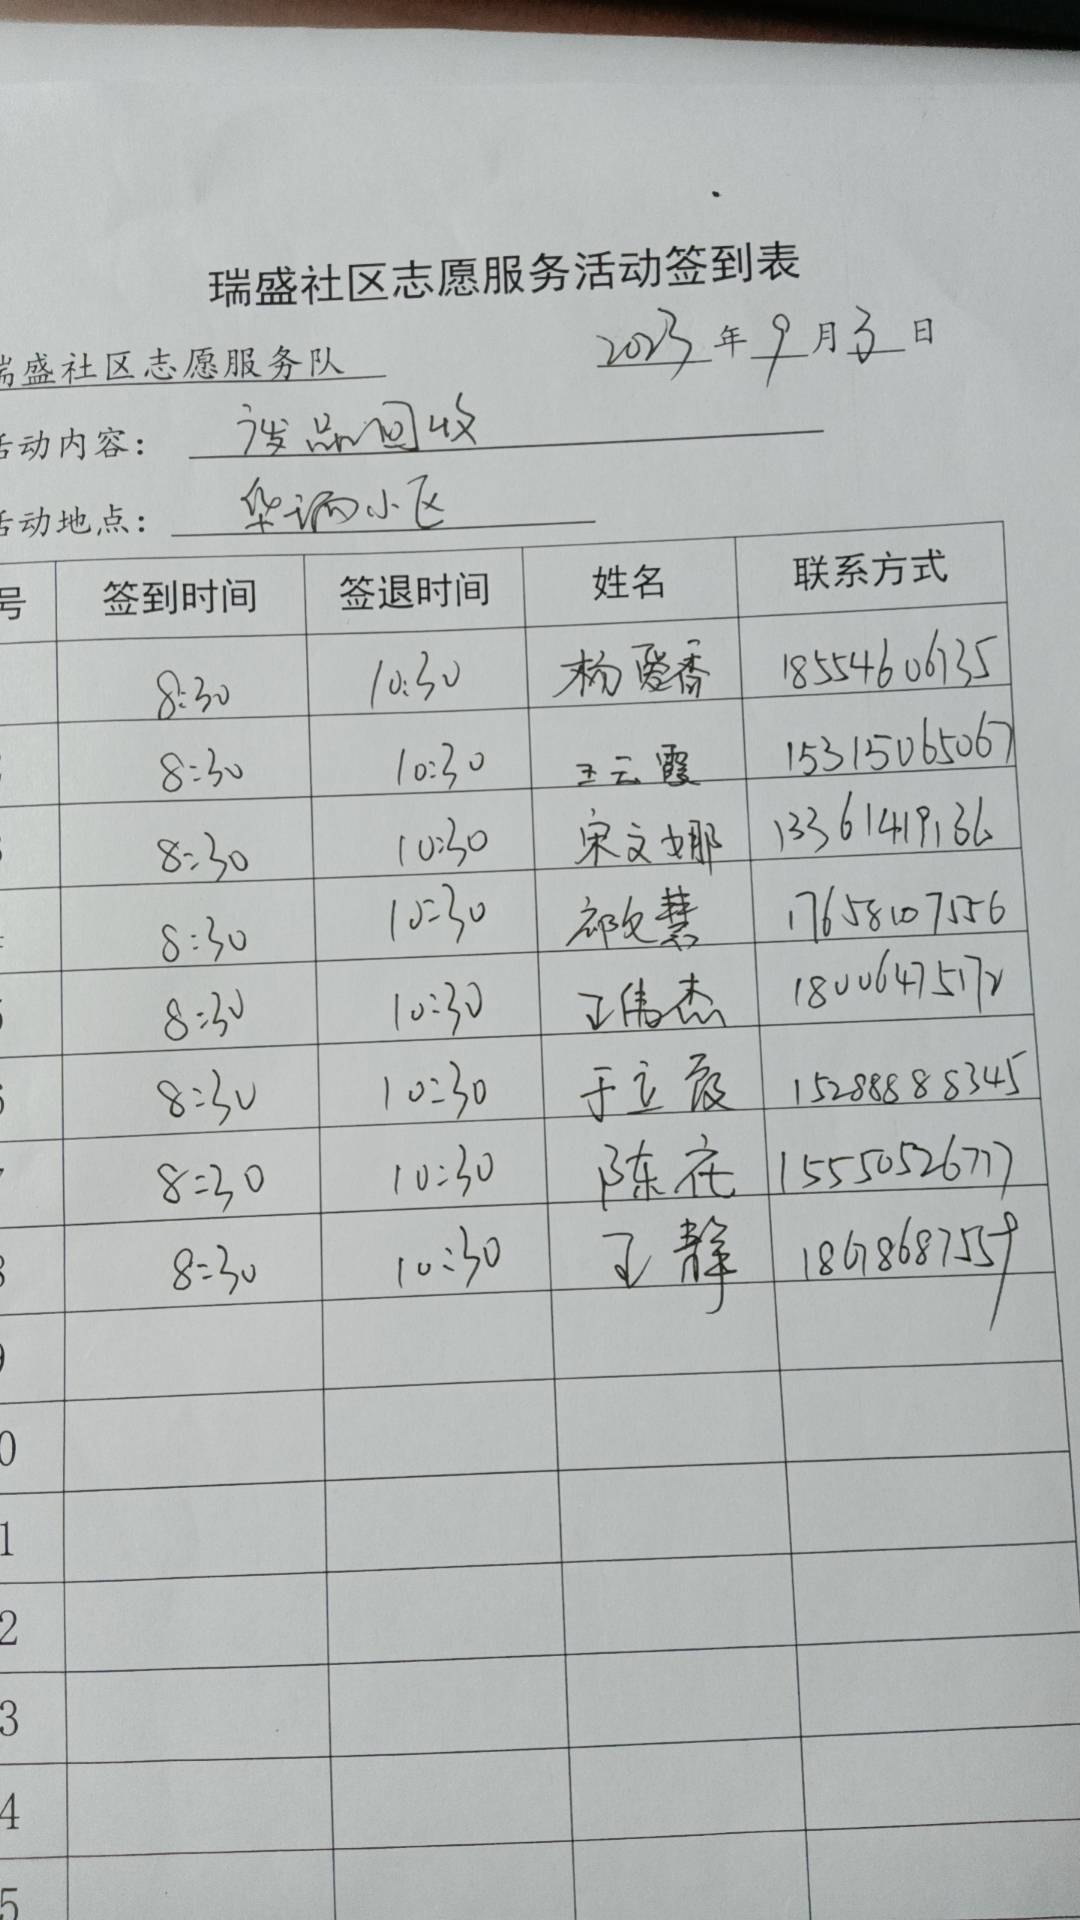 瑞盛社区志愿服务活动签到表
瑞盛社区志愿服务队 2023年9月3日
活动内容： 废品回收
活动地点： 小区
号 签到时间 签退时间 姓名 联系方式
8:30 10:30 杨爱香 18554606735
8:30 10:30 王云霞 15315065067
3 8:30 10:30 宋文娜 13361419136
8:30 10:30 祁文慧 17658107556
5 8:30 10:30 王伟杰 18006475172
6 8:30 10:30 于立霞 15288888345
7 8:30 10:30 陈花 15550526777
8 8:30 10:30 王静 18678687559
9
0
1
2
3
4
5